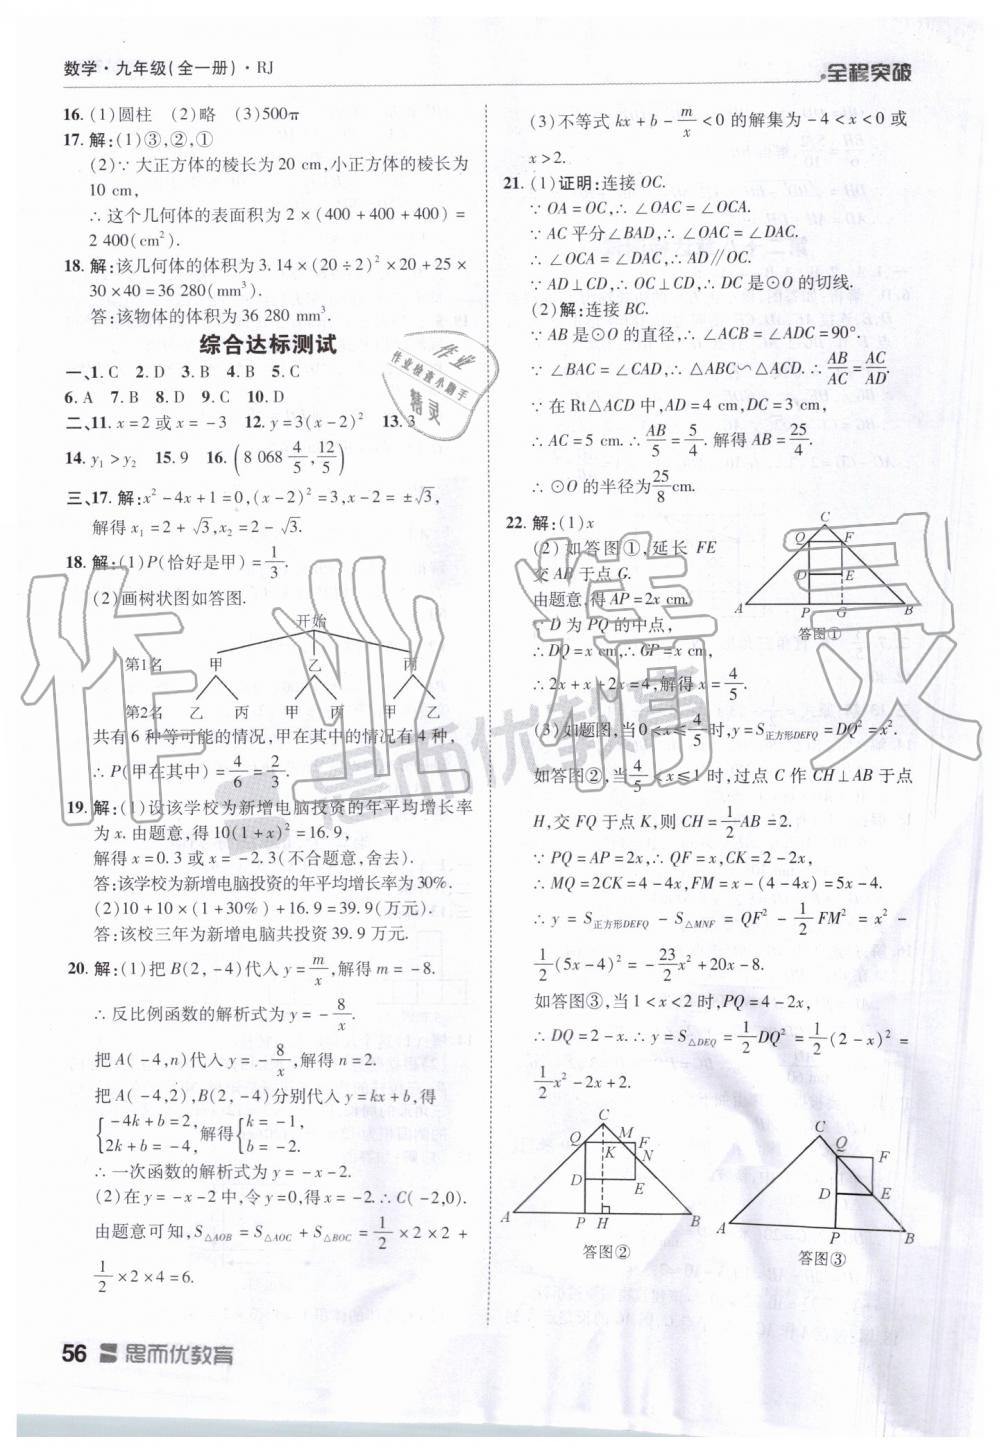 数学·九年级(全一册)·RJ
全程突破
16. (1)圆柱 (2)略 (3)500π
17. 解:(1)③,②,①
(2)∵ 大正方体的棱长为 20 cm,小正方体的棱长为
10 cm,
∴ 这个几何体的表面积为 2×(400+400+400)=
2 400(cm²).
18. 解:该几何体的体积为 3.14×(20÷2)²×20+25×
30×40=36 280(mm³).
答:该物体的体积为 36 280 mm³.
综合达标测试
一、1. C 2. D 3. B 4. B 5. C
6. A 7. B 8. D 9. C 10. D
二、11. x=2或 x=-3 12. y=3(x-2)² 13. 3
14. y₁>y₂ 15. 9 16. (8 068 4/5, 12/5)
三、17. 解:x²-4x+1=0,(x-2)²=3,x-2=±√3,
解得 x₁=2+√3,x₂=2-√3.
18. 解:(1)P(恰好是甲)=1/3.
(2)画树状图如答图.
开始
第1名 甲 乙 丙
第2名 乙 丙 甲 丙 甲 乙
共有 6 种等可能的情况,甲在其中的情况有 4 种,
∴ P(甲在其中)=4/6=2/3.
19. 解:(1)设该学校为新增电脑投资的年平均增长率
为 x. 由题意,得 10(1+x)²=16.9,
解得 x=0.3 或 x=-2.3(不合题意,舍去).
答:该学校为新增电脑投资的年平均增长率为30%.
(2)10+10×(1+30%)+16.9=39.9(万元).
答:该校三年为新增电脑共投资 39.9 万元.
20. 解:(1)把 B(2,-4)代入 y=m/x,解得 m=-8.
∴ 反比例函数的解析式为 y=-8/x.
把 A(-4,n)代入 y=-8/x,解得 n=2.
把 A(-4,2),B(2,-4)分别代入 y=kx+b,得
{-4k+b=2, 2k+b=-4, 解得{k=-1, b=-2.
∴ 一次函数的解析式为 y=-x-2.
(2)在 y=-x-2 中,令 y=0,得 x=-2. ∴ C(-2,0).
由题意可知,S△AOB=S△AOC+S△BOC=1/2×2×2+
1/2×2×4=6.
(3)不等式 kx+b-m/x<0 的解集为 -4<x<0 或
x>2.
21. (1)证明:连接 OC.
∵ OA=OC,∴ ∠OAC=∠OCA.
∵ AC 平分∠BAD,∴ ∠OAC=∠DAC.
∴ ∠OCA=∠DAC,∴ AD∥OC.
∵ AD⊥CD,∴ OC⊥CD,∴ DC 是⊙O 的切线.
(2)解:连接 BC.
∵ AB 是⊙O 的直径,∴ ∠ACB=∠ADC=90°.
∵ ∠BAC=∠CAD,∴ △ABC∽△ACD. ∴ AB/AC=AC/AD.
∵ 在 Rt△ACD 中,AD=4 cm,DC=3 cm,
∴ AC=5 cm. ∴ AB/5=5/4. 解得 AB=25/4.
∴ ⊙O 的半径为25/8cm.
22. 解:(1)x
(2)如答图①,延长 FE
交 AB 于点 G.
由题意,得 AP=2x cm.
∵ D 为 PQ 的中点,
∴ DQ=x cm,∴ GP=x cm,
∴ 2x+x+2x=4,解得 x=4/5.
C Q F D E A P G B
答图①
(3)如题图,当 0<x≤4/5时,y=S正方形DEFQ=DQ²=x².
如答图②,当4/5<x≤1 时,过点 C 作 CH⊥AB 于点
H,交 FQ 于点 K,则 CH=1/2AB=2.
∵ PQ=AP=2x,∴ QF=x,CK=2-2x,
∴ MQ=2CK=4-4x,FM=x-(4-4x)=5x-4.
∴ y=S正方形DEFQ-S△MNF=QF²-1/2FM²=x²-
1/2(5x-4)²=-23/2x²+20x-8.
如答图③,当 1<x<2 时,PQ=4-2x,
∴ DQ=2-x. ∴ y=S△DEQ=1/2DQ²=1/2(2-x)²=
1/2x²-2x+2.
C M Q F K N D E A P H B
答图②
C Q F D E A P B
答图③
56 思而优教育
作业精灵
思而优教育
作业
作业检查小助手
精灵